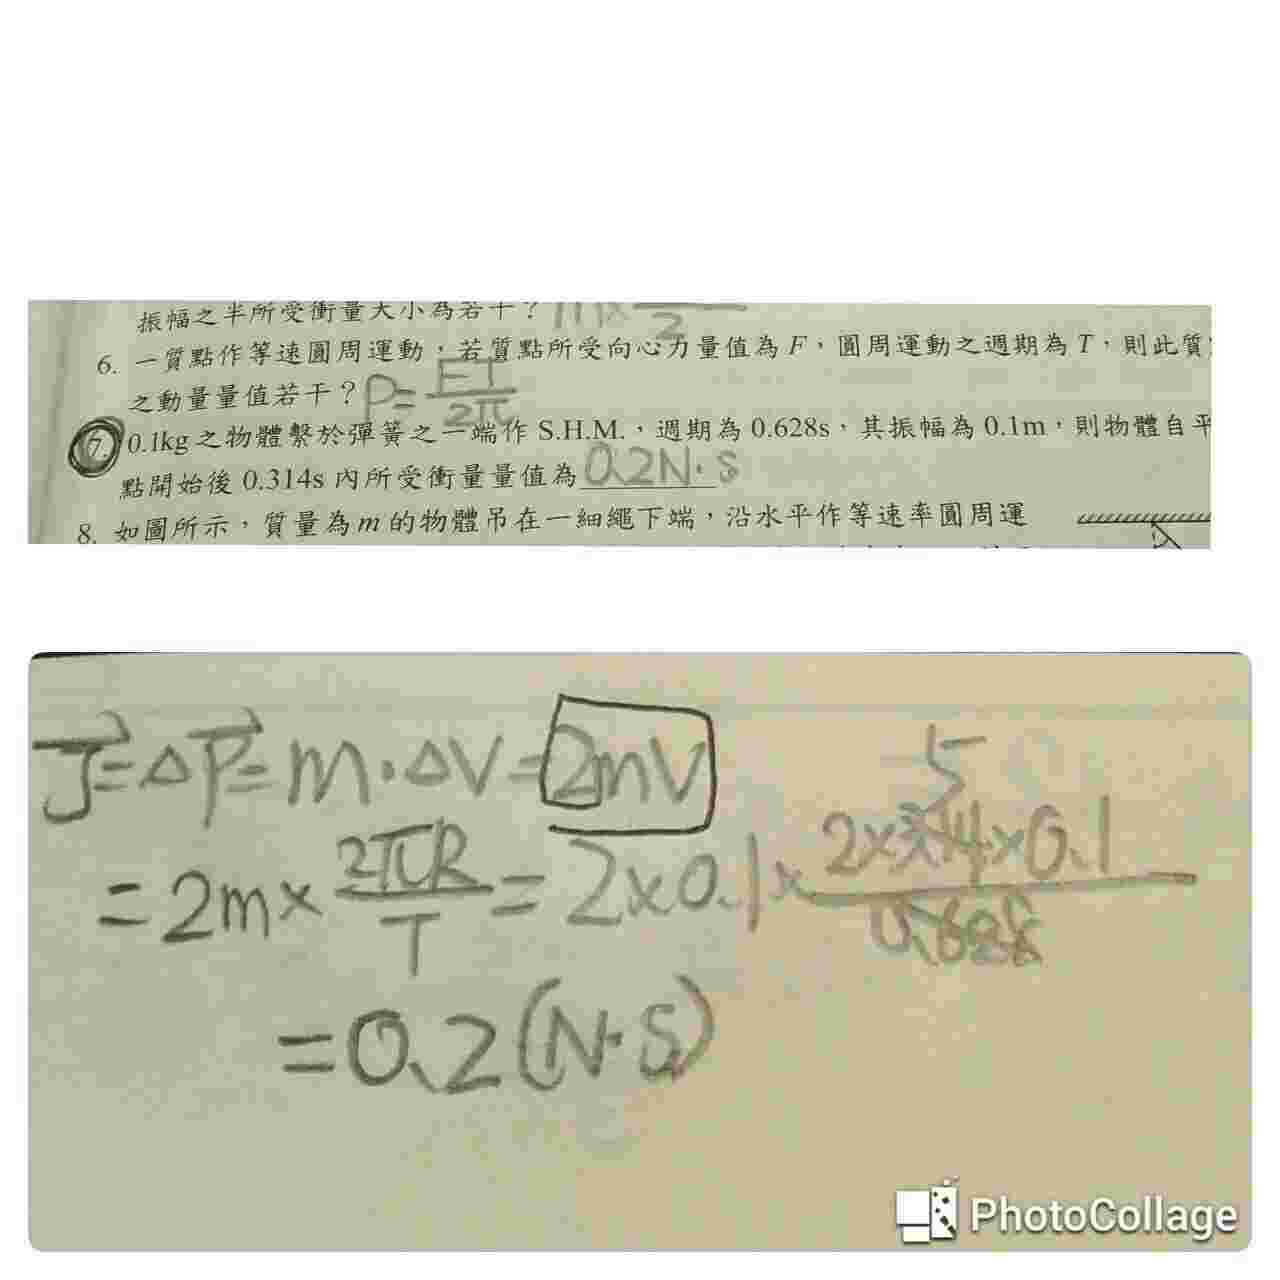 振幅之半所受衝量大小為若干？ m×/2
6. 一質點作等速圓周運動，若質點所受向心力量值為 F，圓周運動之週期為 T，則此質
之動量量值若干？ P=FT/2π
7. 0.1kg 之物體繫於彈簧之一端作 S.H.M.，週期為 0.628s，其振幅為 0.1m，則物體自平
點開始後 0.314s 內所受衝量量值為 0.2N·s
8. 如圖所示，質量為 m 的物體吊在一細繩下端，沿水平作等速率圓周運
J=ΔP=m·ΔV=2mV
=2m×2πR/T=2×0.1×2×3.14×0.1/0.628
5
=0.2(N·S)
PhotoCollage